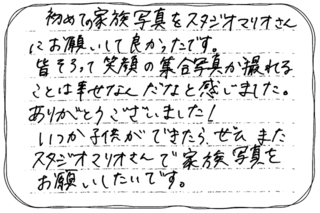 初めての家族写真をスタジオマリオさん
にお願いして良かったです。
皆そろって笑顔の集合写真が撮れる
ことは幸せなんだなと感じました。
ありがとうございました!
いつか子供ができたら、ぜひまた
スタジオマリオさんで家族写真を
お願いしたいです。